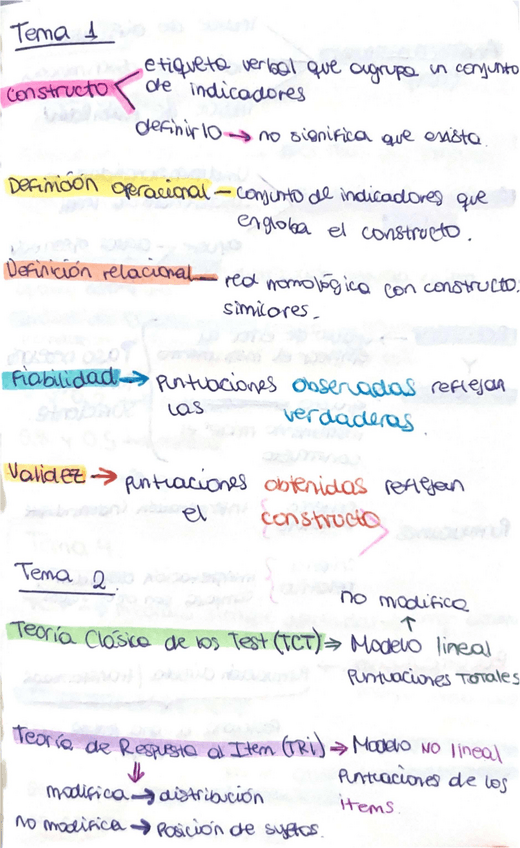 Tema 1
constructo
etiqueta verbal que agrupa un conjunto
de indicadores
definirlo → no significa que exista.
Definición operacional — conjunto de indicadores que
engloba el constructo.
Definición relacional — red nomológica con constructos
similares.
Fiabilidad → puntuaciones observadas reflejan
las verdaderas.
Validez → puntuaciones obtenidas reflejan
el constructo
Tema 2.
no modifica
↑
Teoría Clásica de los Test (TCT) ⇒ Modelo lineal
Puntuaciones Totales
Teoría de Respuesta al Item (TRi) → Modelo NO lineal
Puntuaciones de los
items.
⇓
modifica → distribución
no modifica → Posición de sujetos.